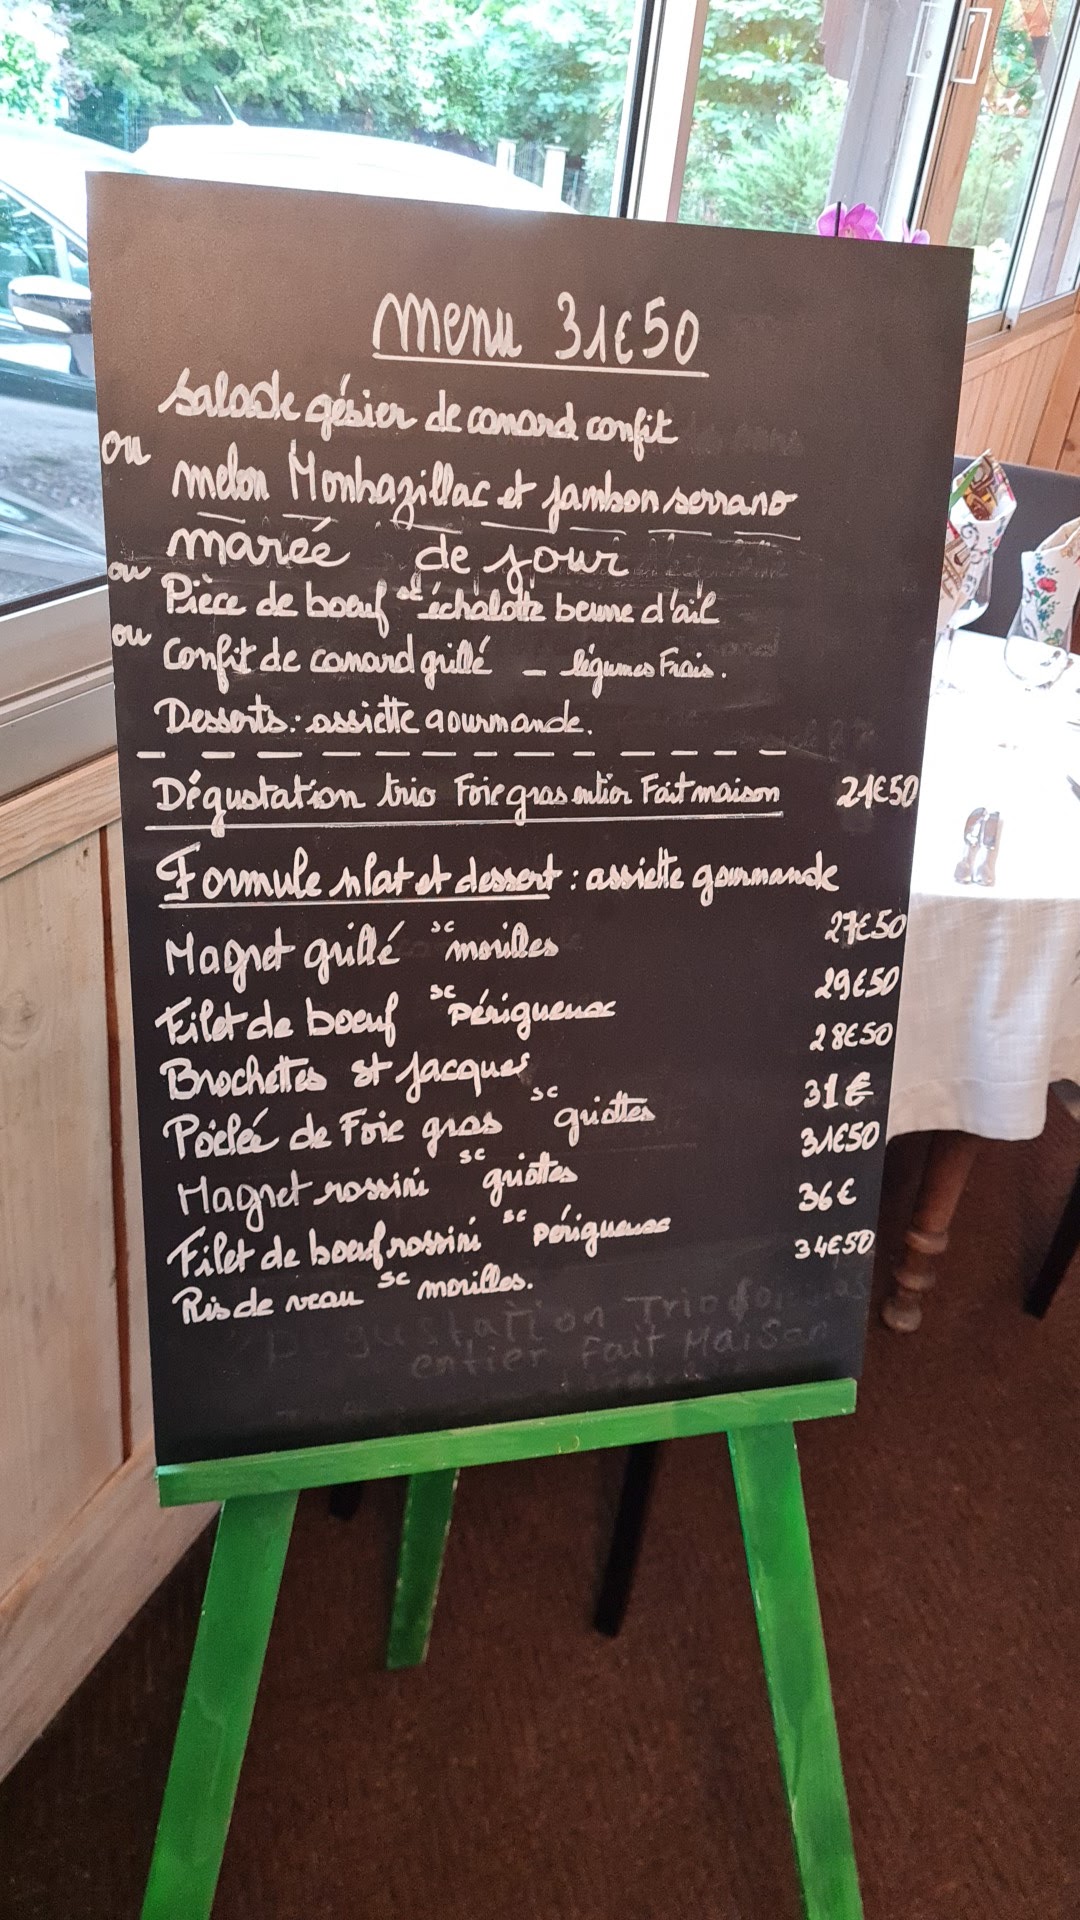 Menu 31€50
Salade gésier de canard confit
ou
melon Monbazillac et jambon serrano
marée de jour
ou
Pièce de boeuf et échalotte beurre d'ail
ou
Confit de canard grillé - légumes Frais.
Desserts: assiette gourmande.
Dégustation trio Foie gras entier Fait maison 21€50
Formule plat et dessert : assiette gourmande
Magret grillé sc morilles 27€50
Filet de boeuf sc Périgueux 29€50
Brochettes st Jacques 28€50
Poêlée de Foie gras sc griottes 31€
Magret rossini sc griottes 31€50
Filet de boeuf rossini sc Périgueux 36€
Ris de veau sc morilles. 34€50
entier Fait Maison